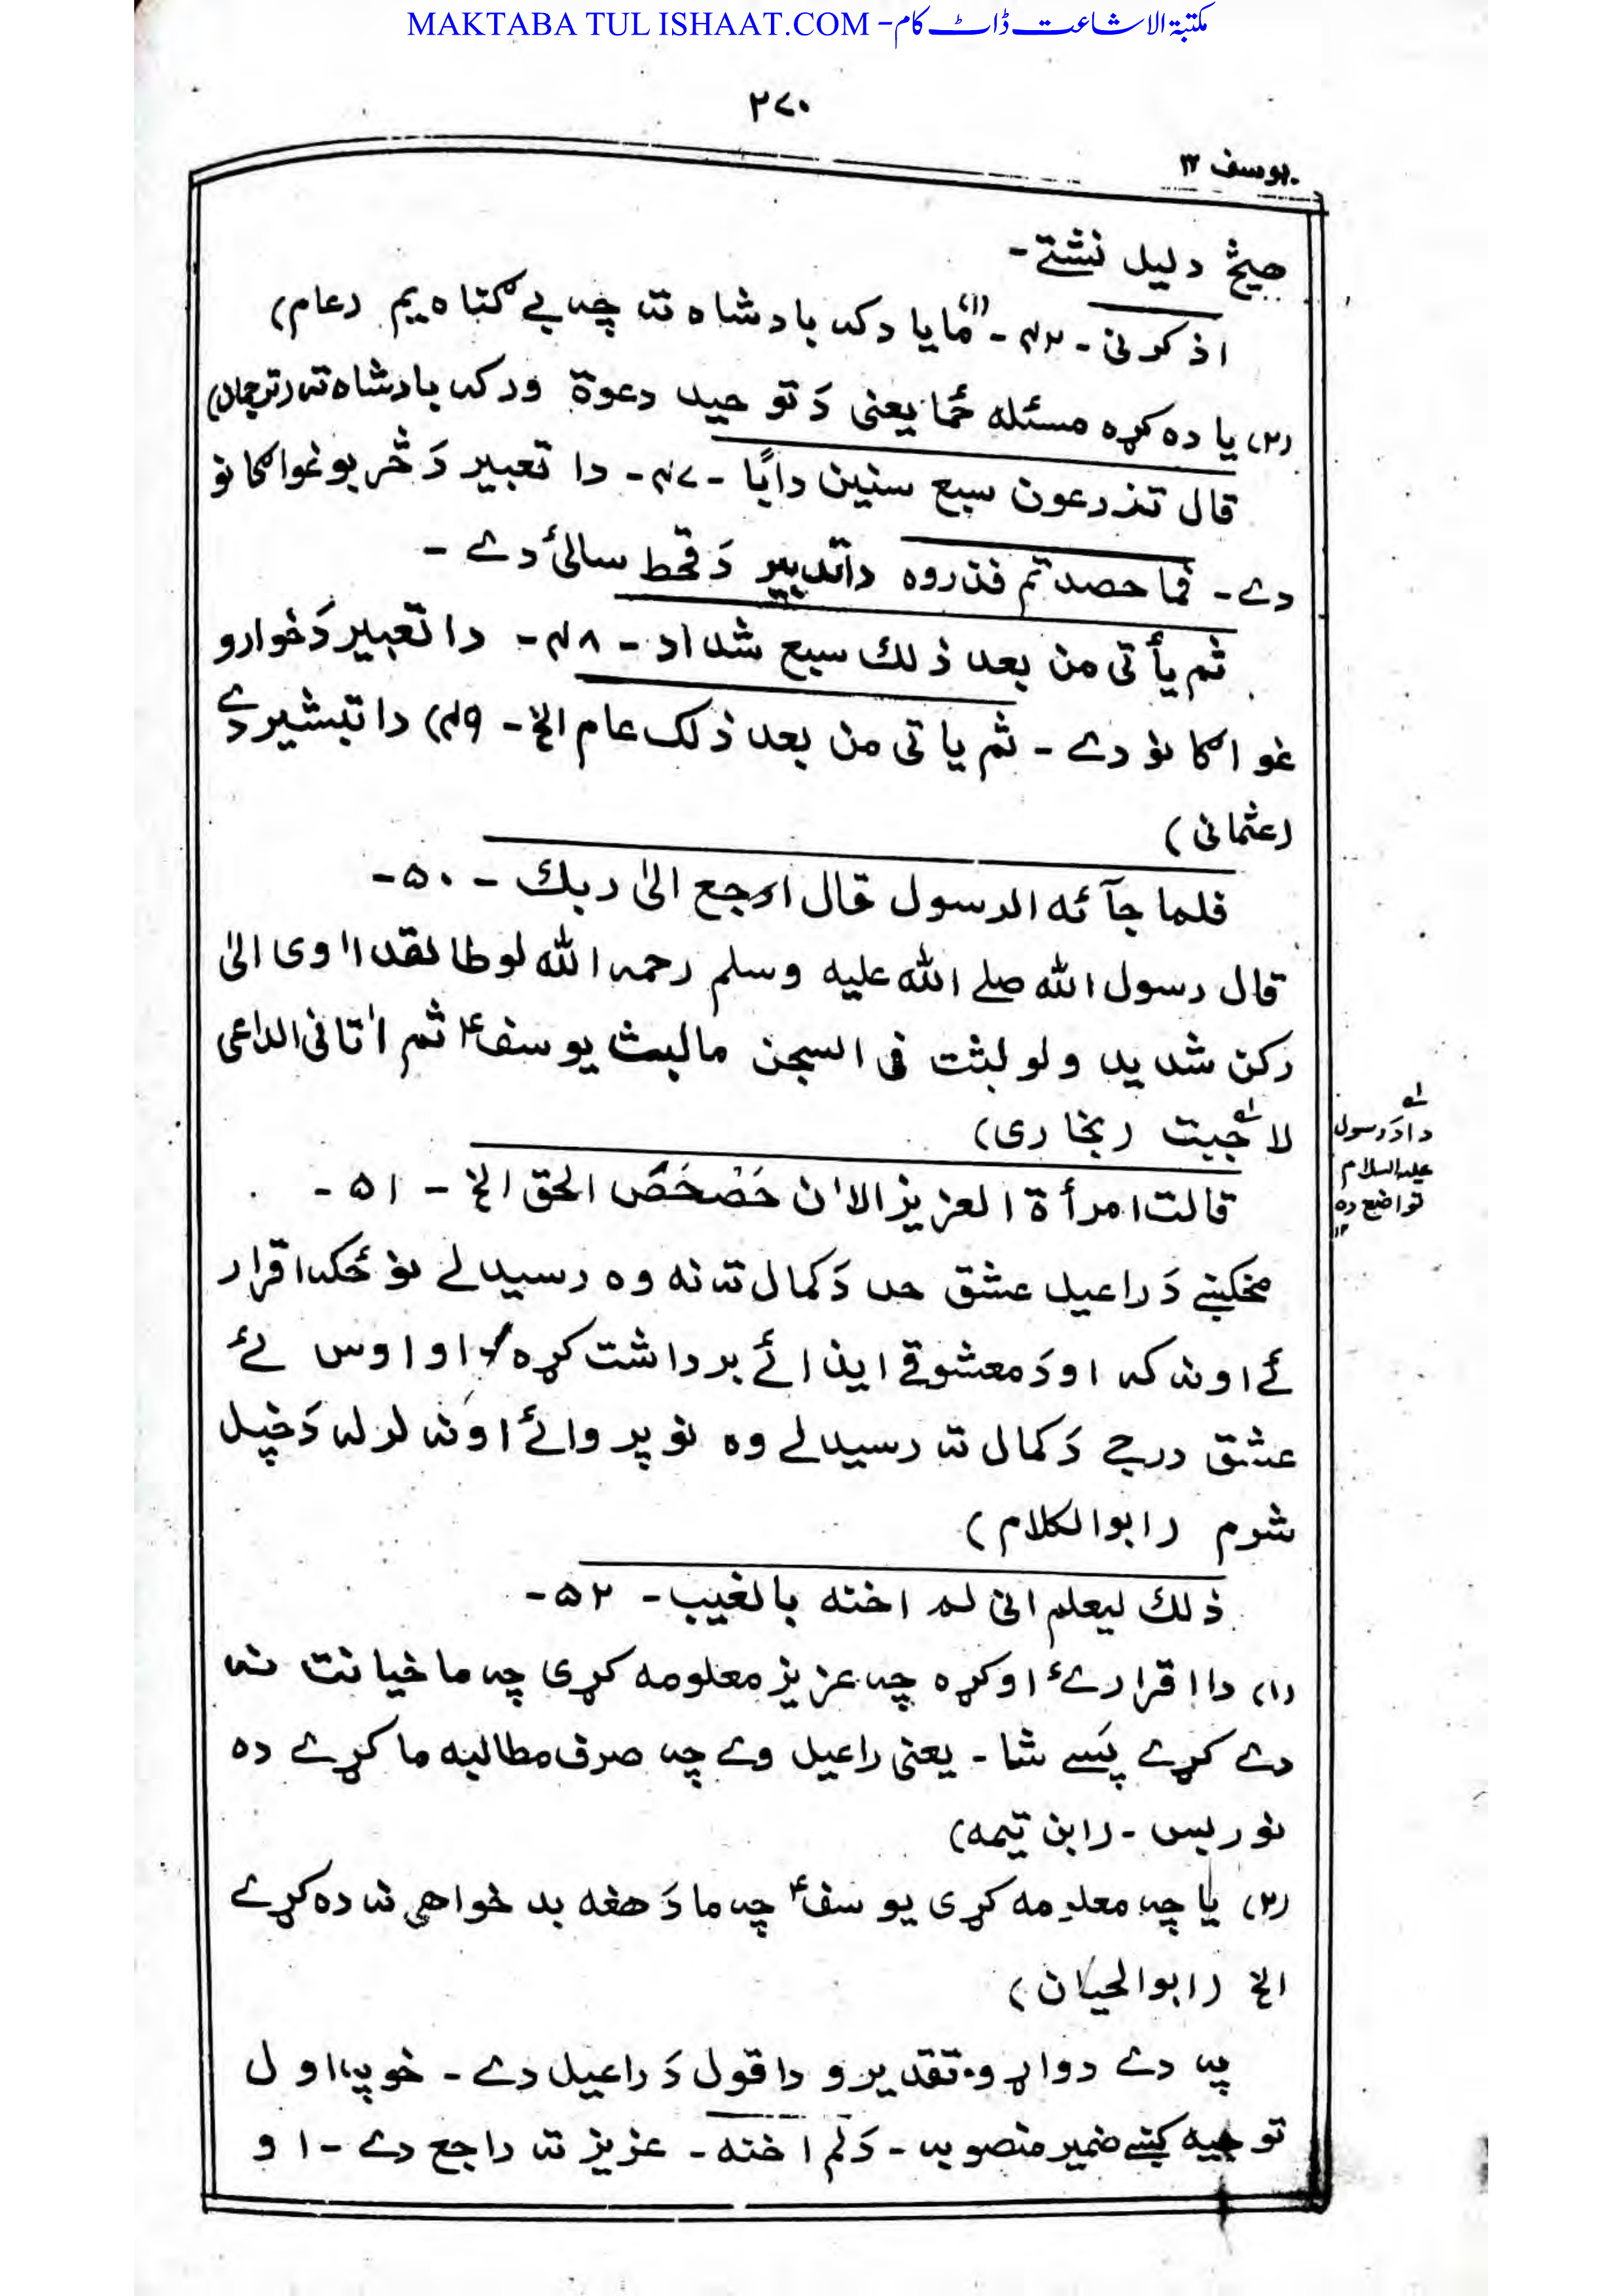 MAKTABA TUL ISHAAT.COM - مکتبۃ الاشاعت ڈاٹ کام
۲۷۰
یوسف ۱۲
هیڅ دلیل نشتے-
اذکرنی - ۴۲ - (۱) ځما یاد کہ بادشاه تہ چہ بے گناه یم (عام)
(۲) یا ده کړه مسئله ځما یعنی دَ توحید دعوة ورکہ بادشاه تہ (ترجمان)
قال تزرعون سبع سنین دابًا - ۴۷ - دا تعبیر دَ څربو غواګانو
دے - فما حصدتم فذروه دا تدبیر دَ قحط سالئ دے -
ثم یأتی من بعد ذلك سبع شداد - ۴۸ - دا تعبیر دَ خوارو
غواګانو دے - ثم یاتی من بعد ذلک عام الخ - ۴۹) دا تبشیر دے
(عثمانی)
فلما جآئه الرسول قال ارجع الیٰ ربك - ۵۰ -
قال رسول الله صلے الله علیه وسلم رحمہ الله لوطا لقد اٰوی الیٰ
رکن شدید ولو لبثت فی السجن ما لبث یوسفؑ ثم اٰتانی الداعی
لاجبت (بخاری)
لہ
دا دَ رسول
علیہ السلام
تواضع ده
۱۲
قالت امرأة العزیز الاٰن حَصْحَصَ الحق الخ - ۵۱ -
مخکښے دَ راعیل عشق حد دَ کمال تہ نه وه رسیدلے نو ځکہ اقرار
ئے اونہ کہ او دَ معشوقے ایذائے برداشت کړه او اوس ئے
عشق درجے دَ کمال تہ رسیدلے وه نو پروائے اونہ لرلہ دَ خپل
شرم (ابوالکلام)
ذلك لیعلم انی لم اخنه بالغیب - ۵۲ -
(۱) دا اقرار ئے اوکړه چہ عزیز معلومه کړی چہ ما خیانت نہ
دے کړے پسے شا - یعنی راعیل وے چہ صرف مطالبه ما کړے ده
نور بس - (ابن تیمه)
(۲) یا چہ معلومه کړی یوسفؑ چہ ما دَ هغه بد خواهی نہ ده کړے
الخ (ابوالحیان)
پہ دے دواړو تقدیرو دا قول دَ راعیل دے - خو پہ اول
توجیه کښے ضمیر منصوبہ - دَ لم اخنه - عزیز تہ راجع دے - او